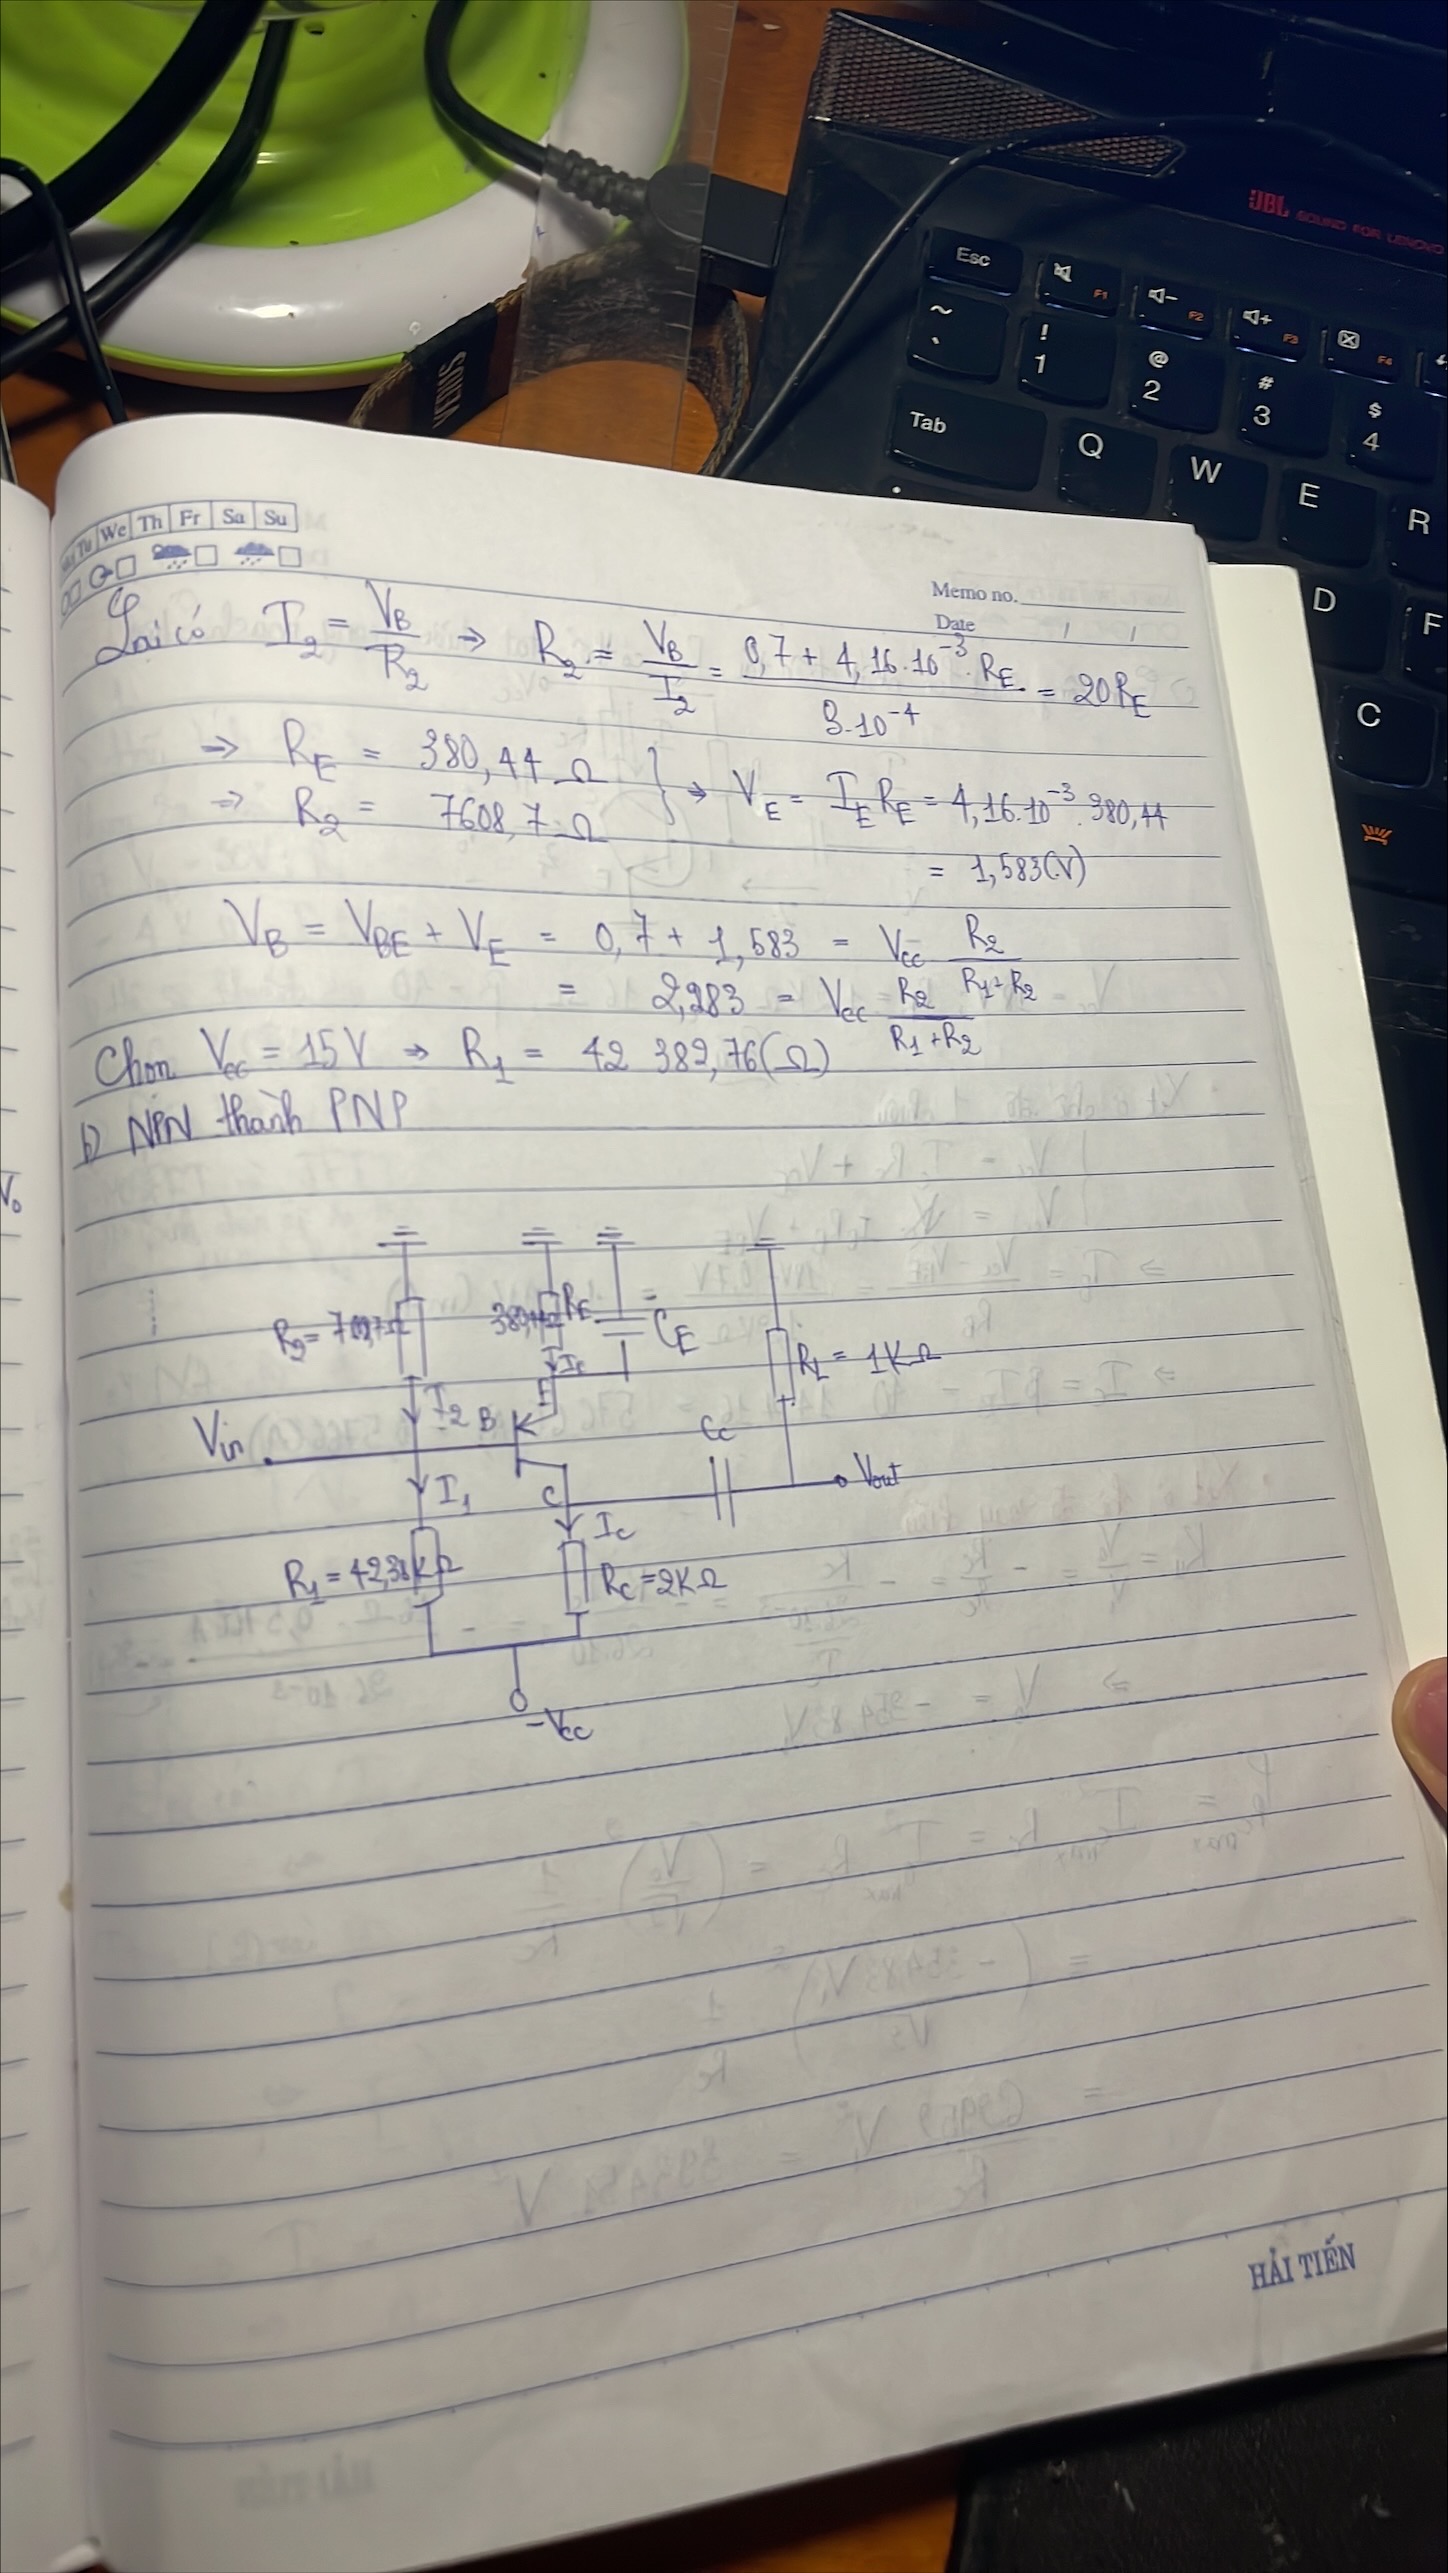 VENUS
JBL SOUND FOR LENOVO
Esc F1 F2 F3 F4
~ ! 1 @ 2 # 3 $ 4
Tab Q W E R
D F
C
Tu We Th Fr Sa Su
Memo no.
Date / /
Lại có I₂ = V_B/R₂ → R₂ = V_B/I₂ = (0,7 + 4,16.10⁻³.R_E)/(3.10⁻⁴) = 20R_E
⇒ R_E = 380,44 Ω
⇒ R₂ = 7608,7 Ω } → V_E = I_E R_E = 4,16.10⁻³.380,44
= 1,583(V)
V_B = V_BE + V_E = 0,7 + 1,583 = V_cc R₂/(R₁+R₂)
= 2,283 = V_cc R₂/(R₁+R₂)
Chọn V_cc = 15V → R₁ = 42 382,76(Ω)
b) NPN thành PNP
380,44Ω R_E C_E
R_L = 1KΩ
I₂ B E
V_in C_c
I₁ C V_out
I_c
R₁ = 42,38KΩ R_c = 2KΩ
-V_cc
HẢI TIẾN